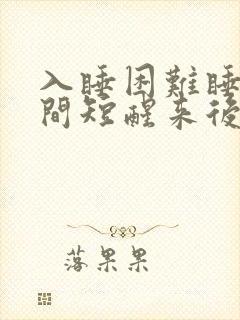 入睡困難睡
間短醒来後
落果果